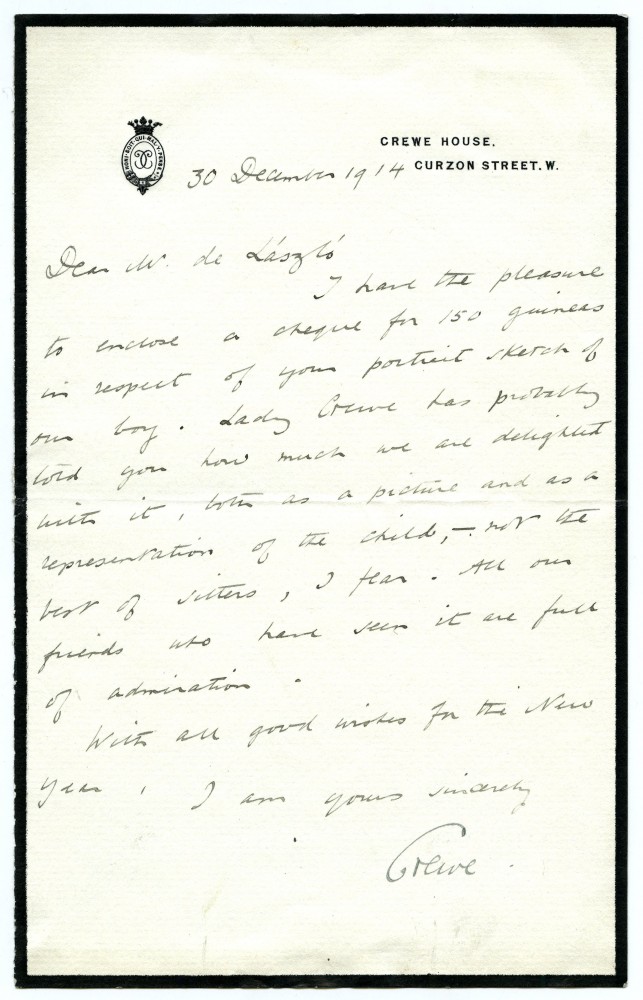 CREWE HOUSE,
CURZON STREET. W.
HONI · SOIT · QUI · MAL · Y · PENSE
30 December 1914
Dear Mr. de László
I have the pleasure
to enclose a cheque for 150 guineas
in respect of your portrait sketch of
our boy. Lady Crewe has probably
told you how much we are delighted
with it, both as a picture and as a
representation of the child, – not the
best of sitters, I fear. All our
friends who have seen it are full
of admiration.
With all good wishes for the New
Year, I am yours sincerely
Crewe.